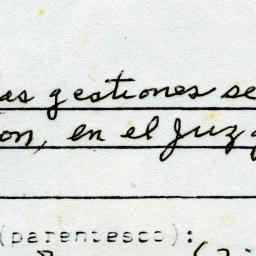 as gestiones se
on, en el Juzg
(parentesco):